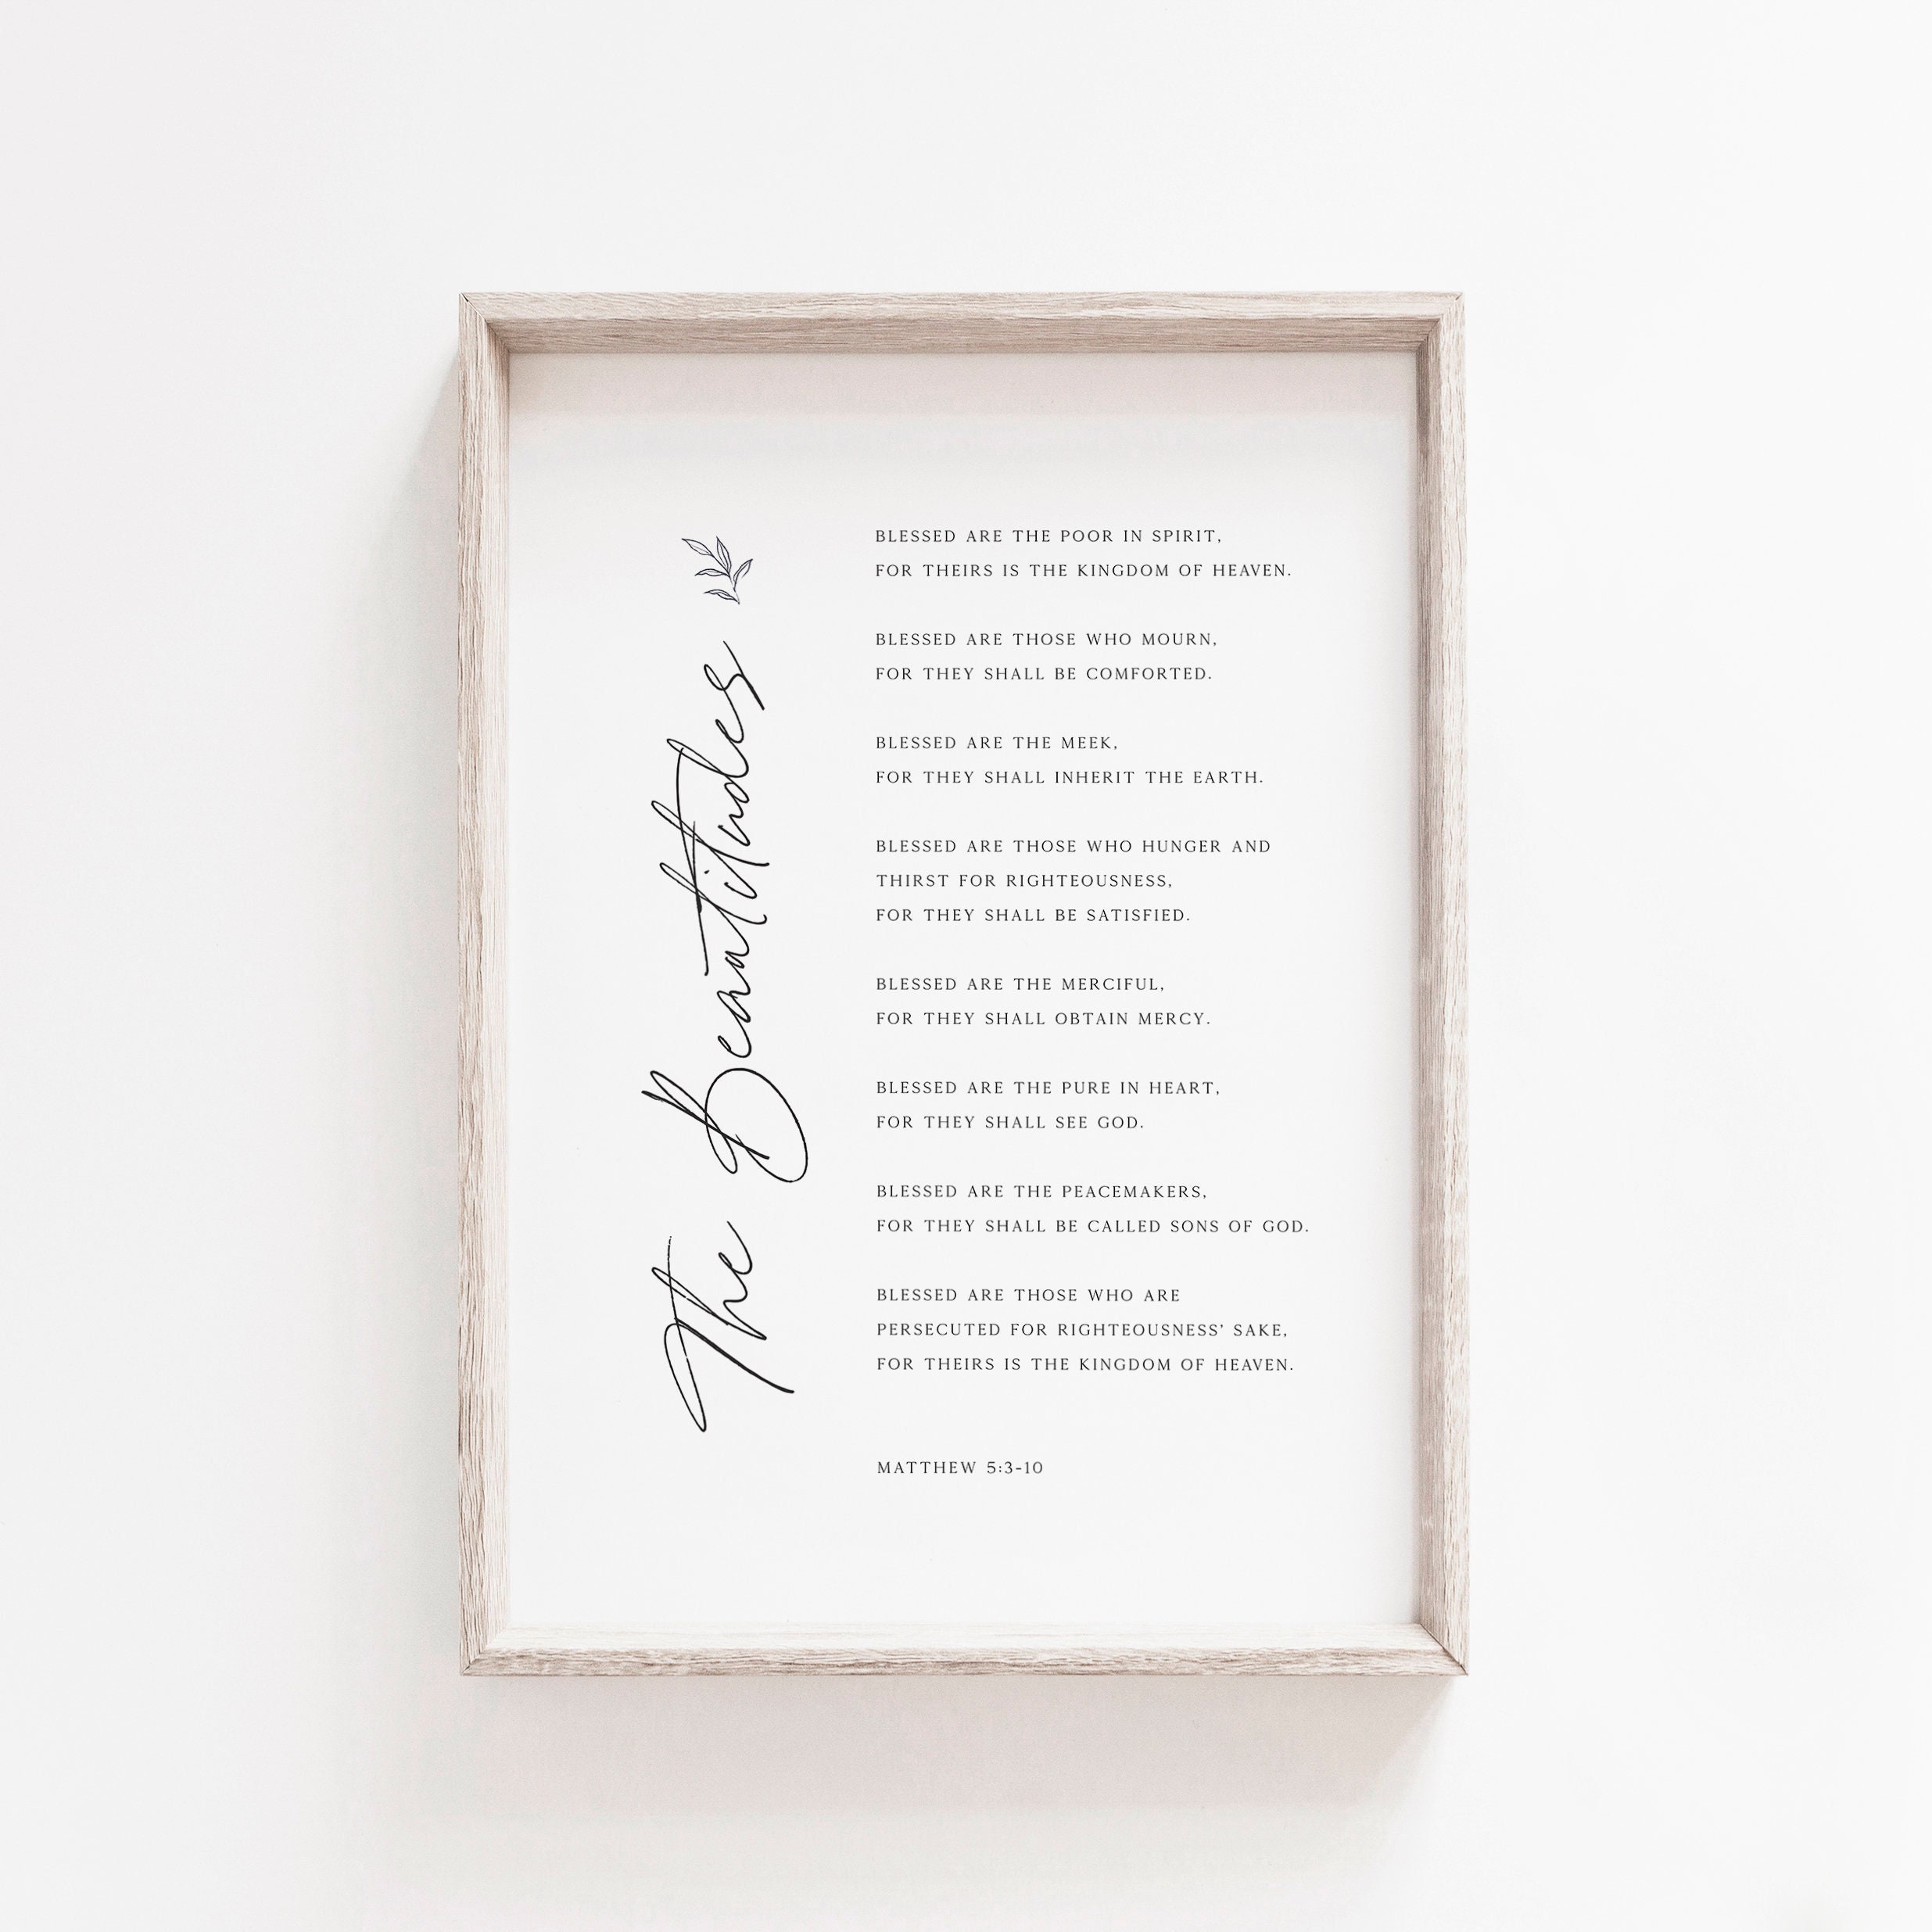 The Beatitudes
BLESSED ARE THE POOR IN SPIRIT,
FOR THEIRS IS THE KINGDOM OF HEAVEN.
BLESSED ARE THOSE WHO MOURN,
FOR THEY SHALL BE COMFORTED.
BLESSED ARE THE MEEK,
FOR THEY SHALL INHERIT THE EARTH.
BLESSED ARE THOSE WHO HUNGER AND
THIRST FOR RIGHTEOUSNESS,
FOR THEY SHALL BE SATISFIED.
BLESSED ARE THE MERCIFUL,
FOR THEY SHALL OBTAIN MERCY.
BLESSED ARE THE PURE IN HEART,
FOR THEY SHALL SEE GOD.
BLESSED ARE THE PEACEMAKERS,
FOR THEY SHALL BE CALLED SONS OF GOD.
BLESSED ARE THOSE WHO ARE
PERSECUTED FOR RIGHTEOUSNESS’ SAKE,
FOR THEIRS IS THE KINGDOM OF HEAVEN.
MATTHEW 5:3-10